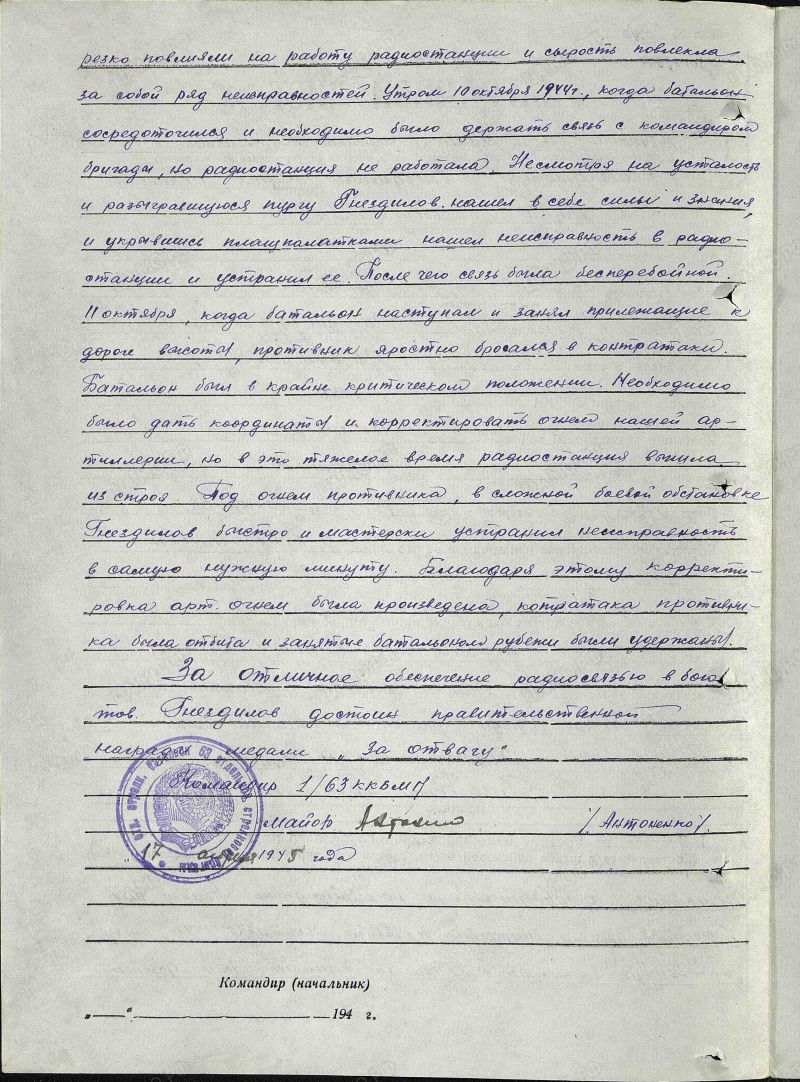 резко повлияли на работу радиостанции и сырость повлекла
за собой ряд неисправностей. Утром 10 октября 1944 г., когда батальон
сосредоточился и необходимо было держать связь с командиром
бригады, но радиостанция не работала. Несмотря на усталость
и разыгравшуюся пургу Гнездилов нашел в себе силы и знания,
и укрывшись плащпалатками нашел неисправность в радио-
станции и устранил ее. После чего связь была бесперебойной.
11 октября, когда батальон наступал и занял прилежащие к
дороге высоты, противник яростно бросался в контратаки.
Батальон был в крайне критическом положении. Необходимо
было дать координаты и корректировать огнем нашей ар-
тиллерии, но в это тяжелое время радиостанция вышла
из строя. Под огнем противника, в сложной боевой обстановке
Гнездилов быстро и мастерски устранил неисправность
в самую нужную минуту. Благодаря этому корректи-
ровка арт. огнем была произведена, котратака противни-
ка была отбита и занятые батальоном рубежи были удержаны.
За отличное обеспечение радиосвязью в боях
тов. Гнездилов достоин правительственной
награды медали „За отвагу"
Командир 1/63 ККБМП
майор /Антоненко/.
„17 апреля 1945 года
Командир (начальник)
„—" — 194 г.